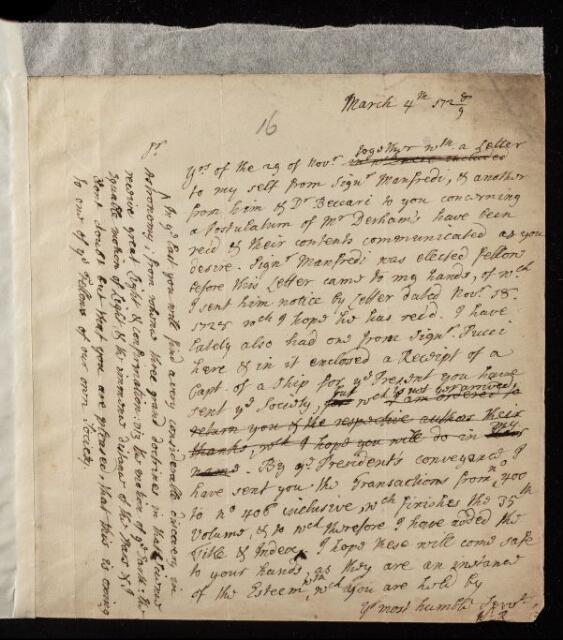 March 4th 172 8/9
16
Sr.
Yrs of the 29 of Novr. together wth. a Letter
in wch were included
to my self from Signr. Manfredi, & another
from him & Dr Beccari to you concerning
a Postulatum of Mr Derham's have been
recd & their contents communicated as you
desire. Signr. Manfredi was elected fellow
before this Letter came to my hands, of wch
I sent him notice by Letter dated Novr. 18.
1728 wch I hope he has recd. I have
lately also had one from Signr. Pucci
here & in it enclosed a Receipt of a
Capt. of a Ship for ye Present you have
sent ye Society, but wch is not yet arrived,
I am ordered to
return you & the respective authors their
thanks, wch I hope you will do in my
name. By ye. President's conveyance I
have sent you the Transactions from no 400
to no 406 inclusive, wch finishes the 35th
Volume, & to wch therefore I have added the
Title & Index. I hope these will come safe
to your hands, as they are an instance
of the Esteem, in wch you are held by
yr most humble Servt.
^ In ye Last you will find a very considerable discovery in
Astronomy; from whence three grand doctrines in that science
receive great Light & confirmation: viz the motion of ye Earth: the
equable motion of Light: & the immense distance of the stars: & I
dont doubt but that you are pleased, that this is owing
to one of ye Fellows of our own Society